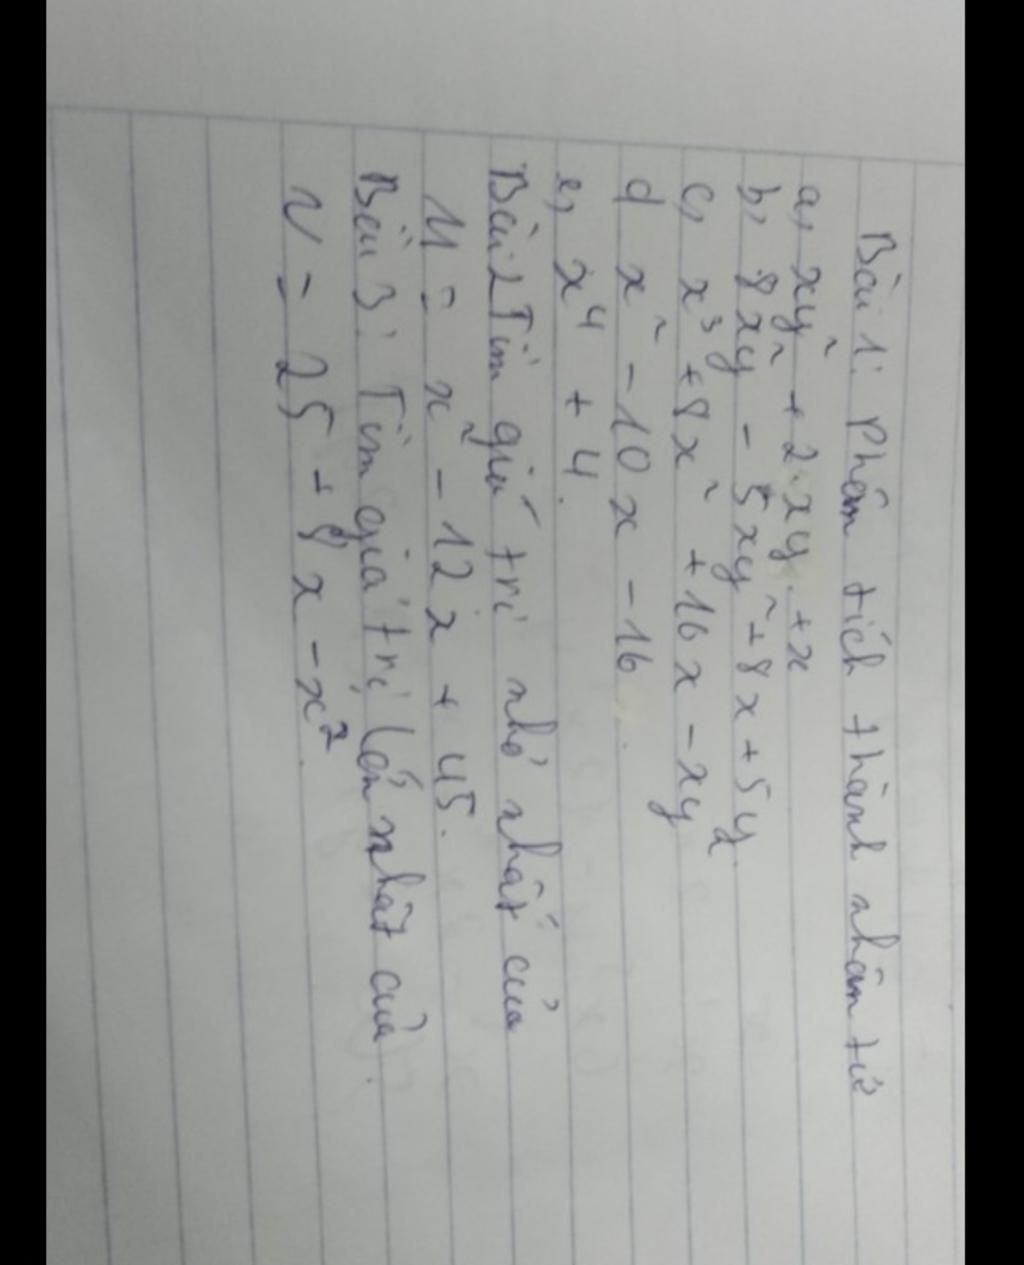 Bài 1: Phân tích thành nhân tử
a, xy² + 2.xy. + x
b, 8xy² - 5xy² + 8x + 5y
c, x³ + 8x² + 16x - xy²
d x² - 10x - 16.
e, x⁴ + 4.
Bài 2 Tìm giá trị nhỏ nhất của
M = x² - 12x + 45.
Bài 3: Tìm giá trị lớn nhất của.
N = 25 + 8x - x².